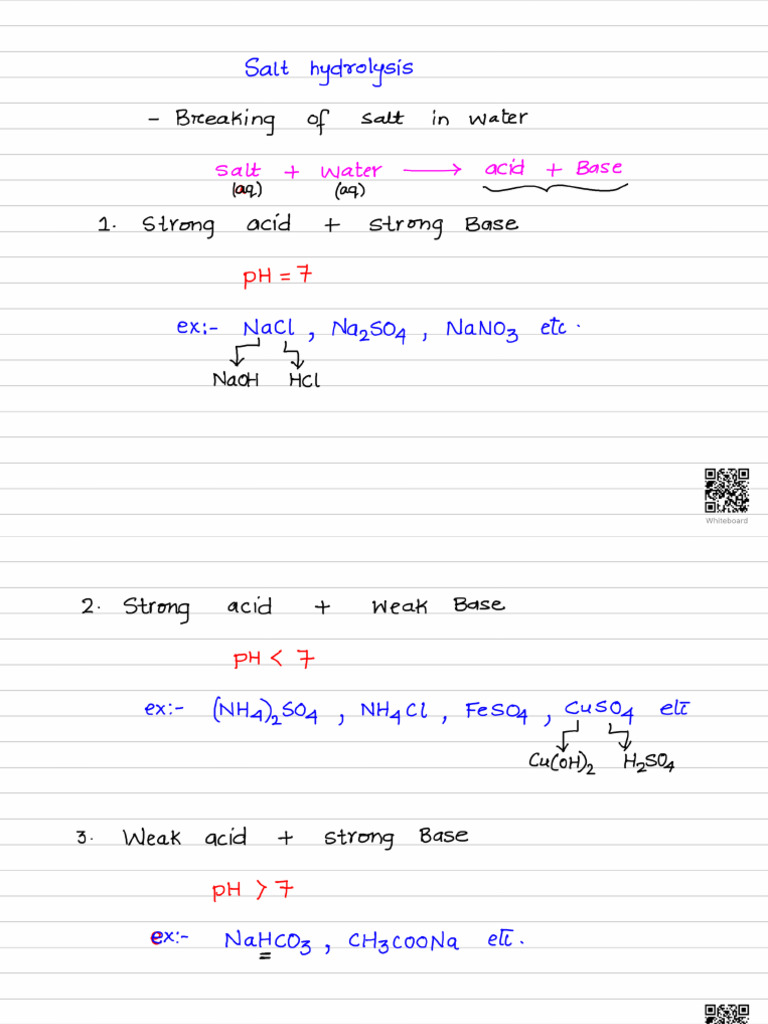 Salt hydrolysis
- Breaking of salt in water
salt + water ⟶ acid + Base
(aq) (aq)
1. Strong acid + strong Base
pH = 7
ex:- NaCl , Na₂SO₄ , NaNO₃ etc.
NaOH HCl
Whiteboard
2. Strong acid + weak Base
pH < 7
ex:- (NH₄)₂SO₄ , NH₄Cl , FeSO₄ , CuSO₄ etc
Cu(OH)₂ H₂SO₄
3. Weak acid + strong Base
pH > 7
ex:- NaHCO₃ , CH₃COONa etc.